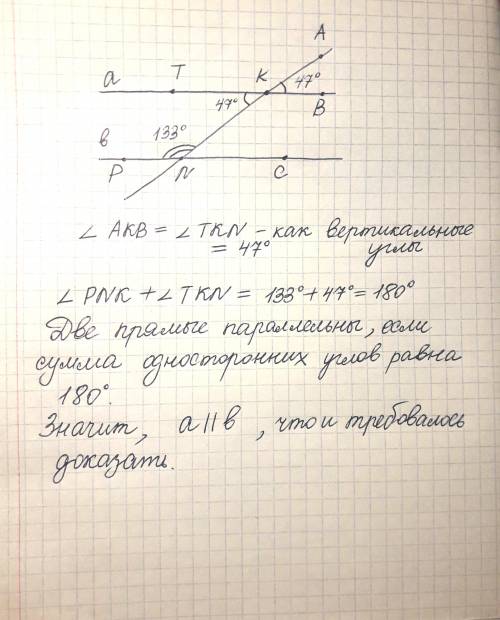 A
a T K 47°
47° B
в 133°
P N C
∠ AKB = ∠ TKN - как вертикальные
= 47° углы
∠ PNK + ∠ TKN = 133° + 47° = 180°
Две прямые параллельны, если
сумма односторонних углов равна
180°.
Значит, a || в, что и требовалось
доказать.